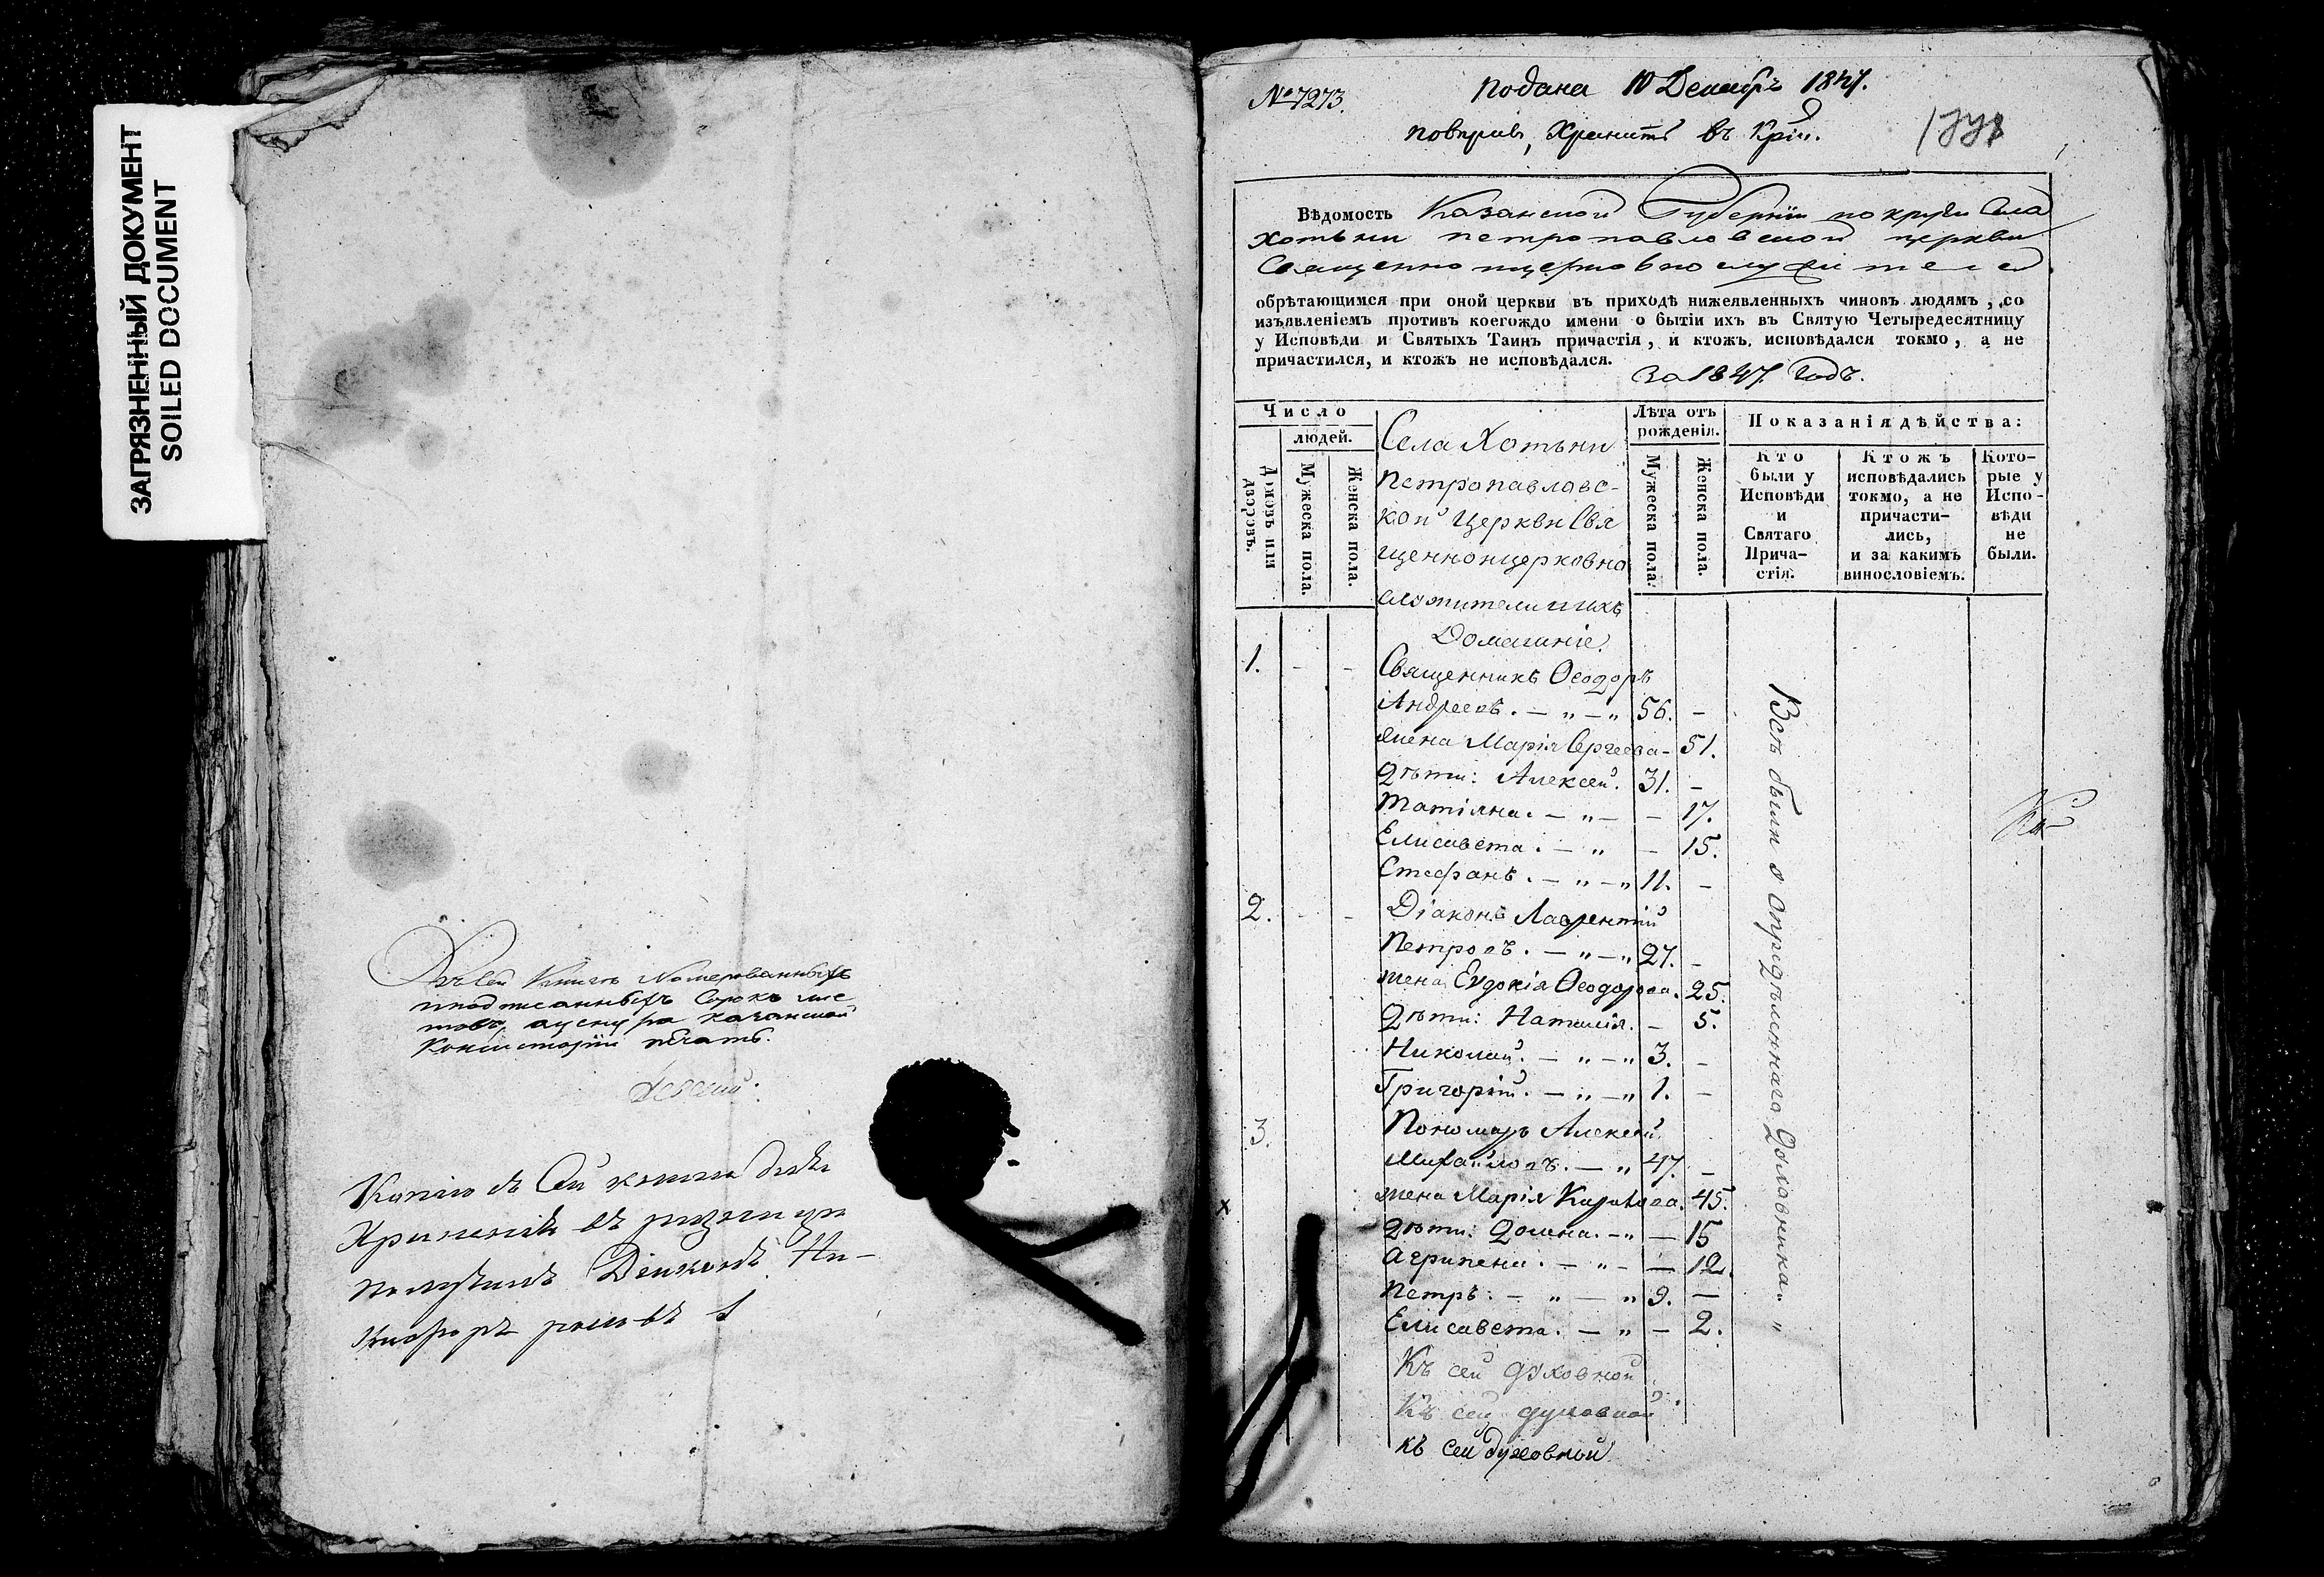 ЗАГРЯЗНЕННЫЙ ДОКУМЕНТ
SOILED DOCUMENT
Книгѣ Номерованныхъ
и подписанныхъ Сорокъ лис
товъ, Казанской
Консисторіи печать.
Копію съ Сей книги для
Храненія въ ризницу
получилъ Діаконъ
№ 7273.
подана 10 Декабрѣ 1847.
повѣривъ, Хранить въ
Вѣдомость Казанской Губерніи округи Села
Хотьни петропавловской церкви
Священноцерковнослужителей
обрѣтающимся при оной церкви въ приходѣ нижеявленныхъ чиновъ людямъ, со
изъявленіемъ противъ коегождо имени о бытіи ихъ въ Святую Четыредесятницу
у Исповѣди и Святыхъ Таинъ причастія, и ктожъ исповѣдался токмо, а не
причастился, и ктожъ не исповѣдался.
За 1847. Годъ.
Число
людей.
Домовъ или дворовъ.
Мужеска пола.
Женска пола.
Села Хотьни
Петропавловс-
кой Церкви Свя
щенноцерковно
служители и ихъ
Домашніе.
Лѣта отъ
рожденія.
Мужеска пола.
Женска пола.
Показанія дѣйства:
Кто
были у
Исповѣди
и
Святаго
Прича-
стія.
Ктожъ
исповѣдались
токмо, а не
причасти-
лись,
и за какимъ
винословіемъ.
Кото-
рые у
Испо-
вѣди
не
были.
1. - - Священникъ Ѳеодоръ
Андреевъ. — „ — „ 56. -
жена Марія Сергеева - 51.
Дѣти: Алексей. 31. -
Татіяна. — „ — - 17.
Елисавета. — „ - 15.
Стефанъ. — „ — „ 11. -
2. - - Діаконъ Лаврентій
Петровъ. — „ — „ 27. -
жена Евдокія Ѳеодорова. 25.
Дѣти: Наталія. - 5.
Николай. — „ — „ 3. -
Григорій. — „ — „ 1. -
3. Пономарь Алексей
Михайловъ. — „ 47. -
x жена Марія Кирилова. 45.
Дѣти: Домна. - „ — 15
Агрипена. — „ - — 12.
Петръ. — „ — „ 9. —
Елисавета. — „ — 2.
Всѣ были у опредѣленнаго Духовника „ „
Къ сей духовной
Къ сей духовной
къ сей духовной